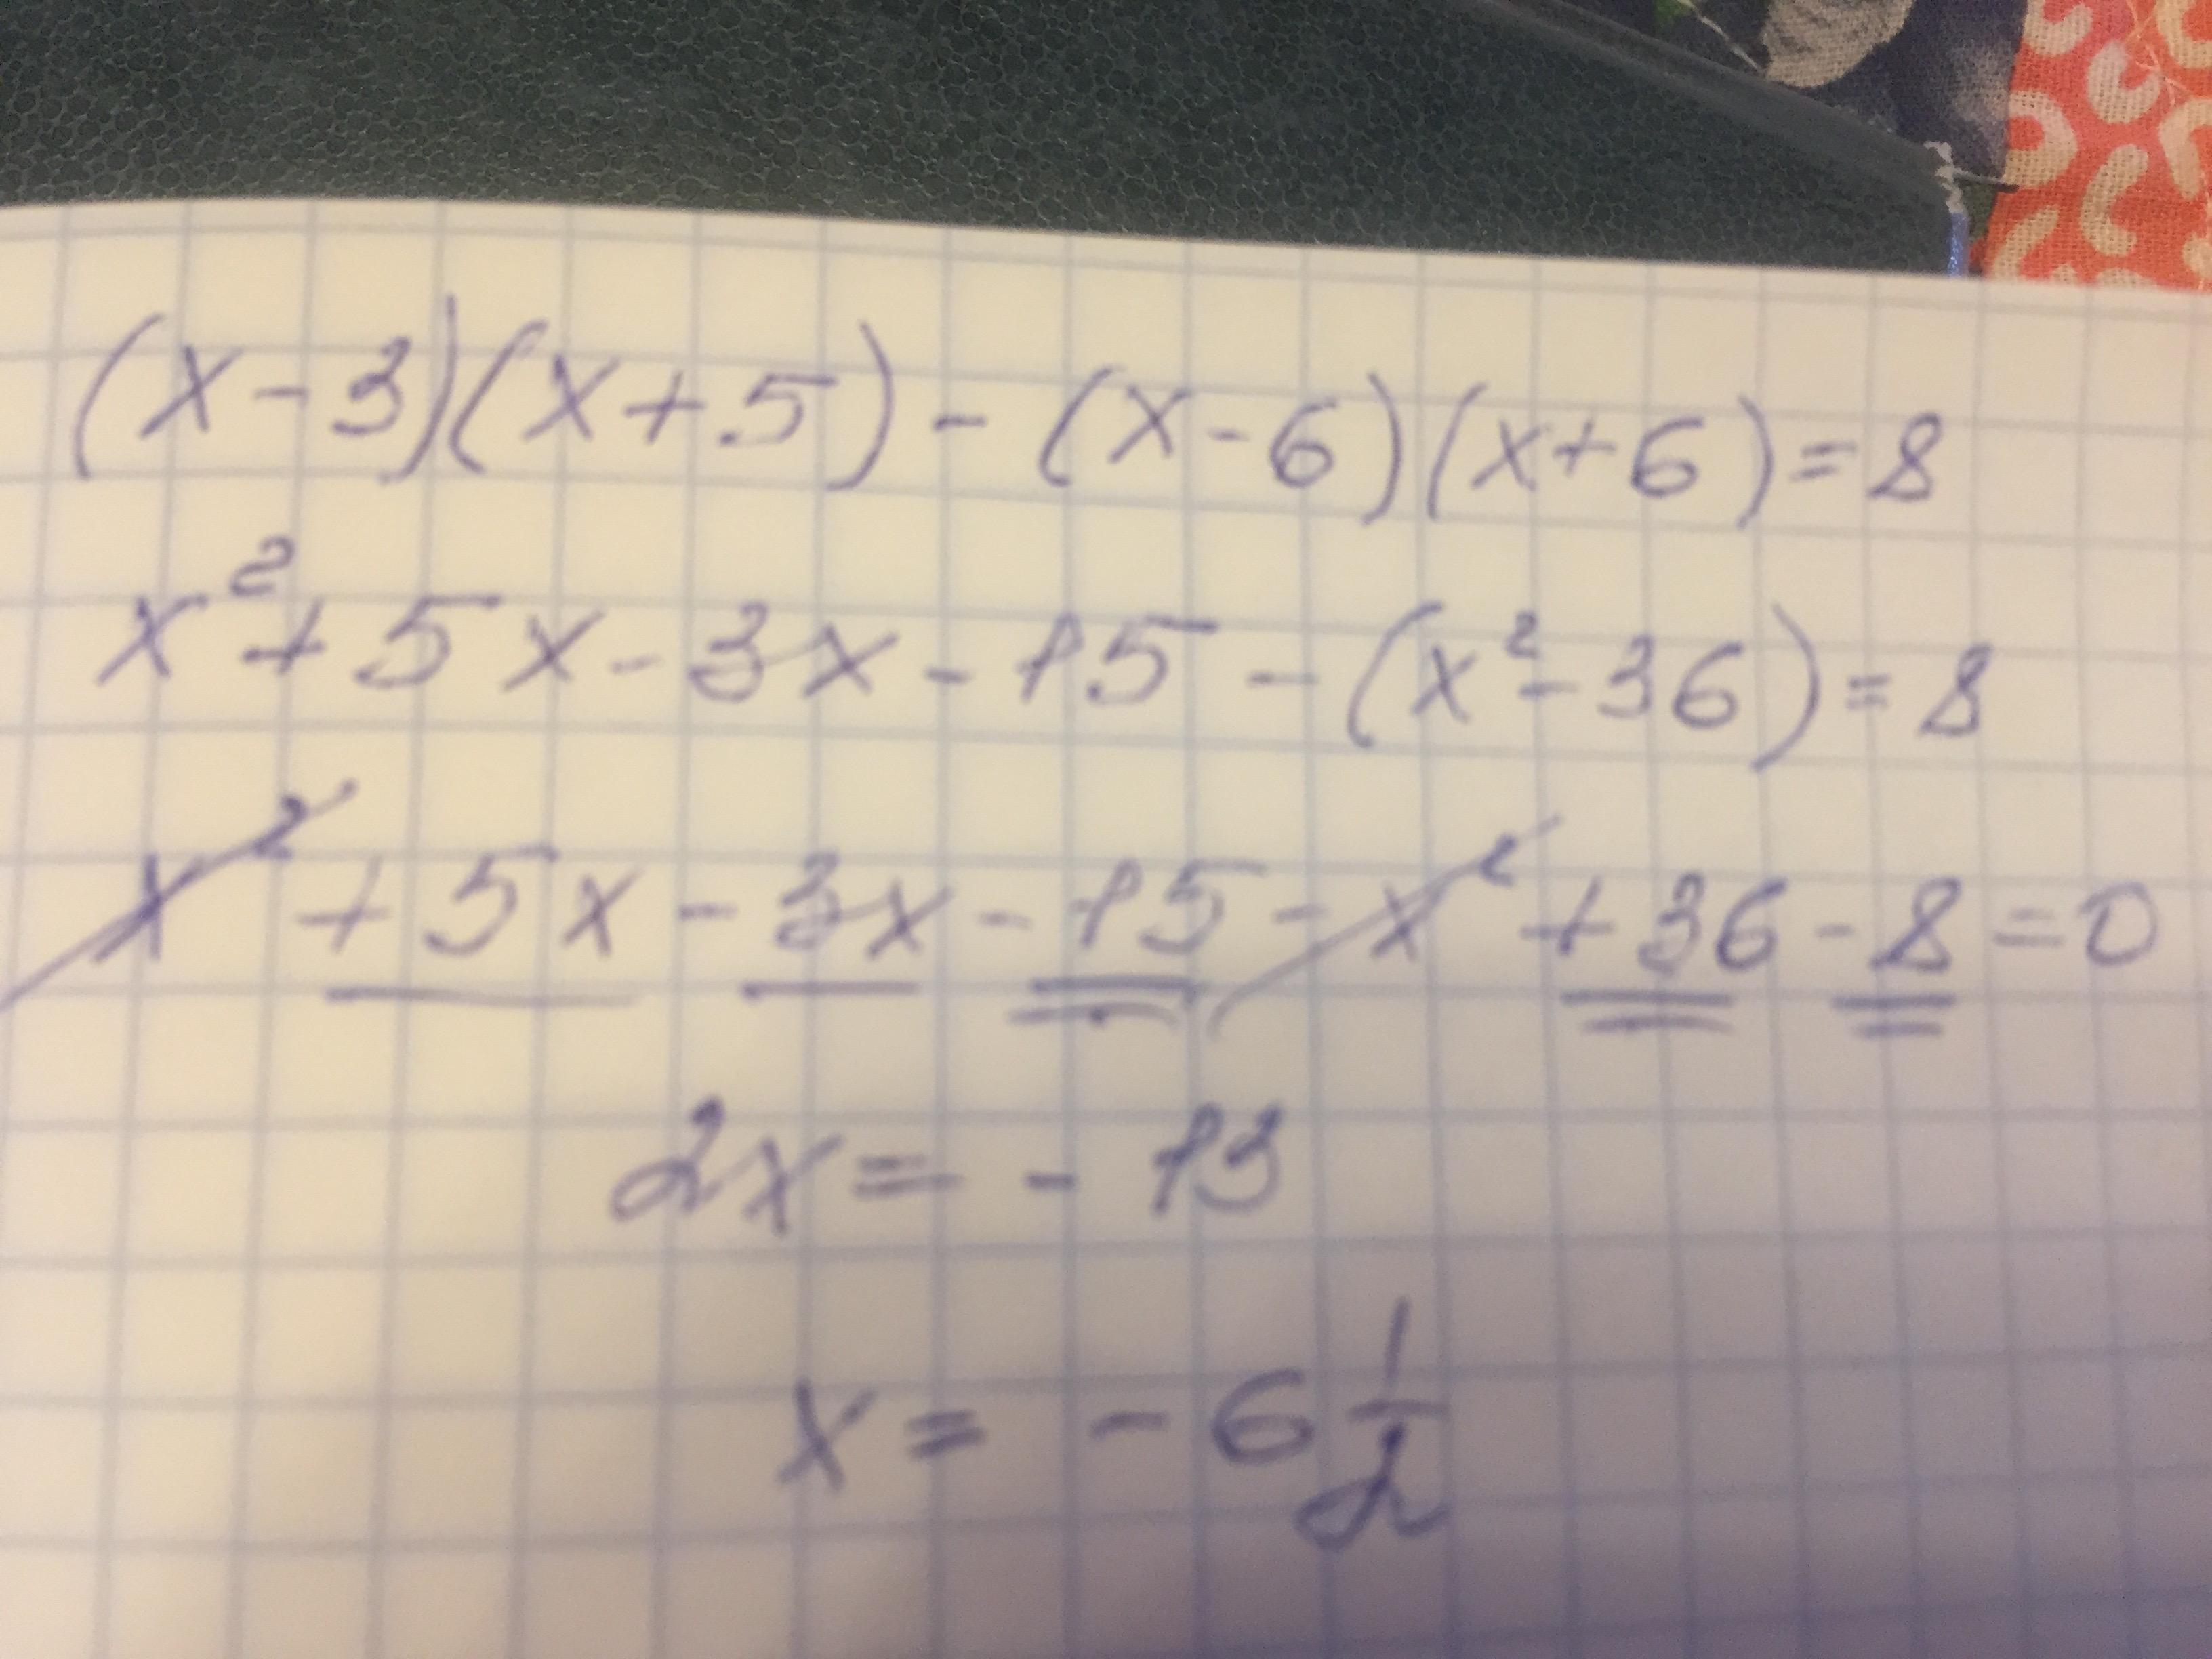 (x-3)(x+5)-(x-6)(x+6)=8
x²+5x-3x-15-(x²-36)=8
x²+5x-3x-15-x²+36-8=0
2x=-13
x=-6 1/2